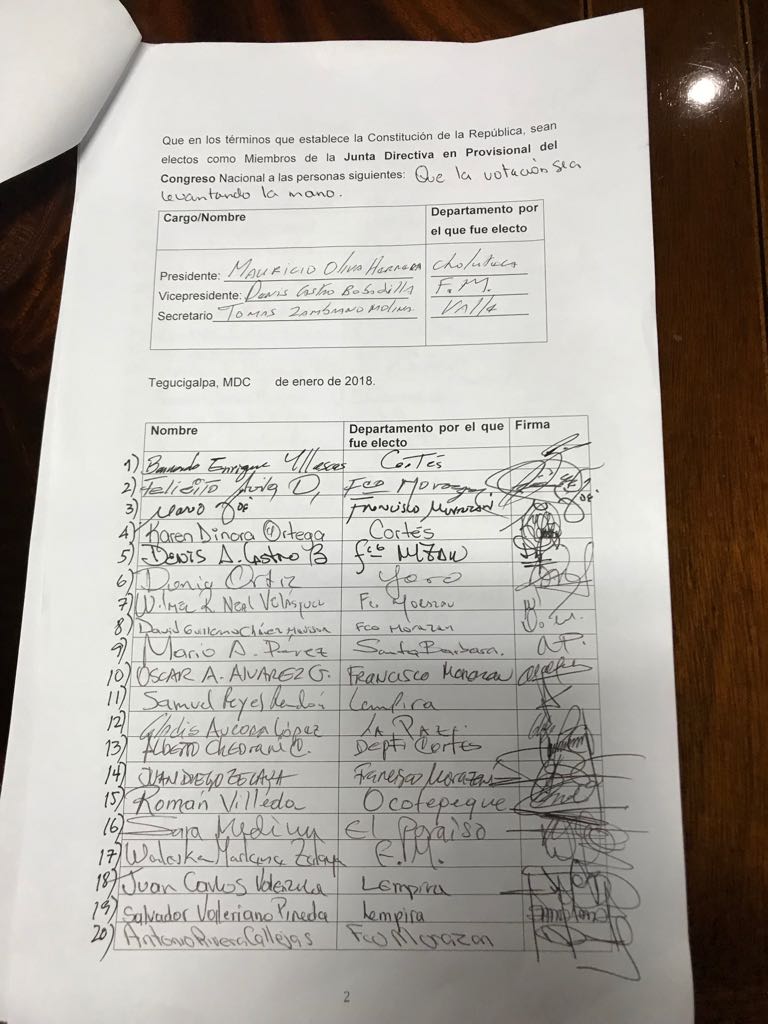 Que en los términos que establece la Constitución de la República, sean
electos como Miembros de la Junta Directiva en Provisional del
Congreso Nacional a las personas siguientes: Que la votación sea
levantando la mano.
Cargo/Nombre Departamento por el que fue electo
Presidente: Mauricio Oliva Herrera Choluteca
Vicepresidente: Denis Castro Bobadilla F.M.
Secretario Tomas Zambrano Molina Valle
Tegucigalpa, MDC de enero de 2018.
Nombre Departamento por el que fue electo Firma
1) Enrique Yllescas Cortés
2) Felicito Avila O, Fco Morazan
3) Mario Francisco Morazan
4) Karen Dinora Ortega Cortés
5) DENIS A. Castro B fco MZAN
6) Denia Ortiz Yoro
7) Wilmer R. Neal Velasquez Fc Morazan
8) David Guillermo Chávez Madison Fco Morazan
9) Mario A. Pérez Santa Barbara.
10) OSCAR A. ALVAREZ G. Francisco Morazan
11) Samuel Reyes Rendón Lempira
12) Gladis Aurora López La Paz.
13) ALBERTO CHEDRANI C. Depti Cortes
14) JUAN DIEGO ZELAYA Francisco Morazan
15) Román Villeda Ocotepeque
16) Sara Medina El Paraiso
17) Waleska Zelaya F.M.
18) Juan Carlos Valenzuela Lempira
19) Salvador Valeriano Pineda Lempira
20) Antonio Rivera Callejas Fco Morazan
2